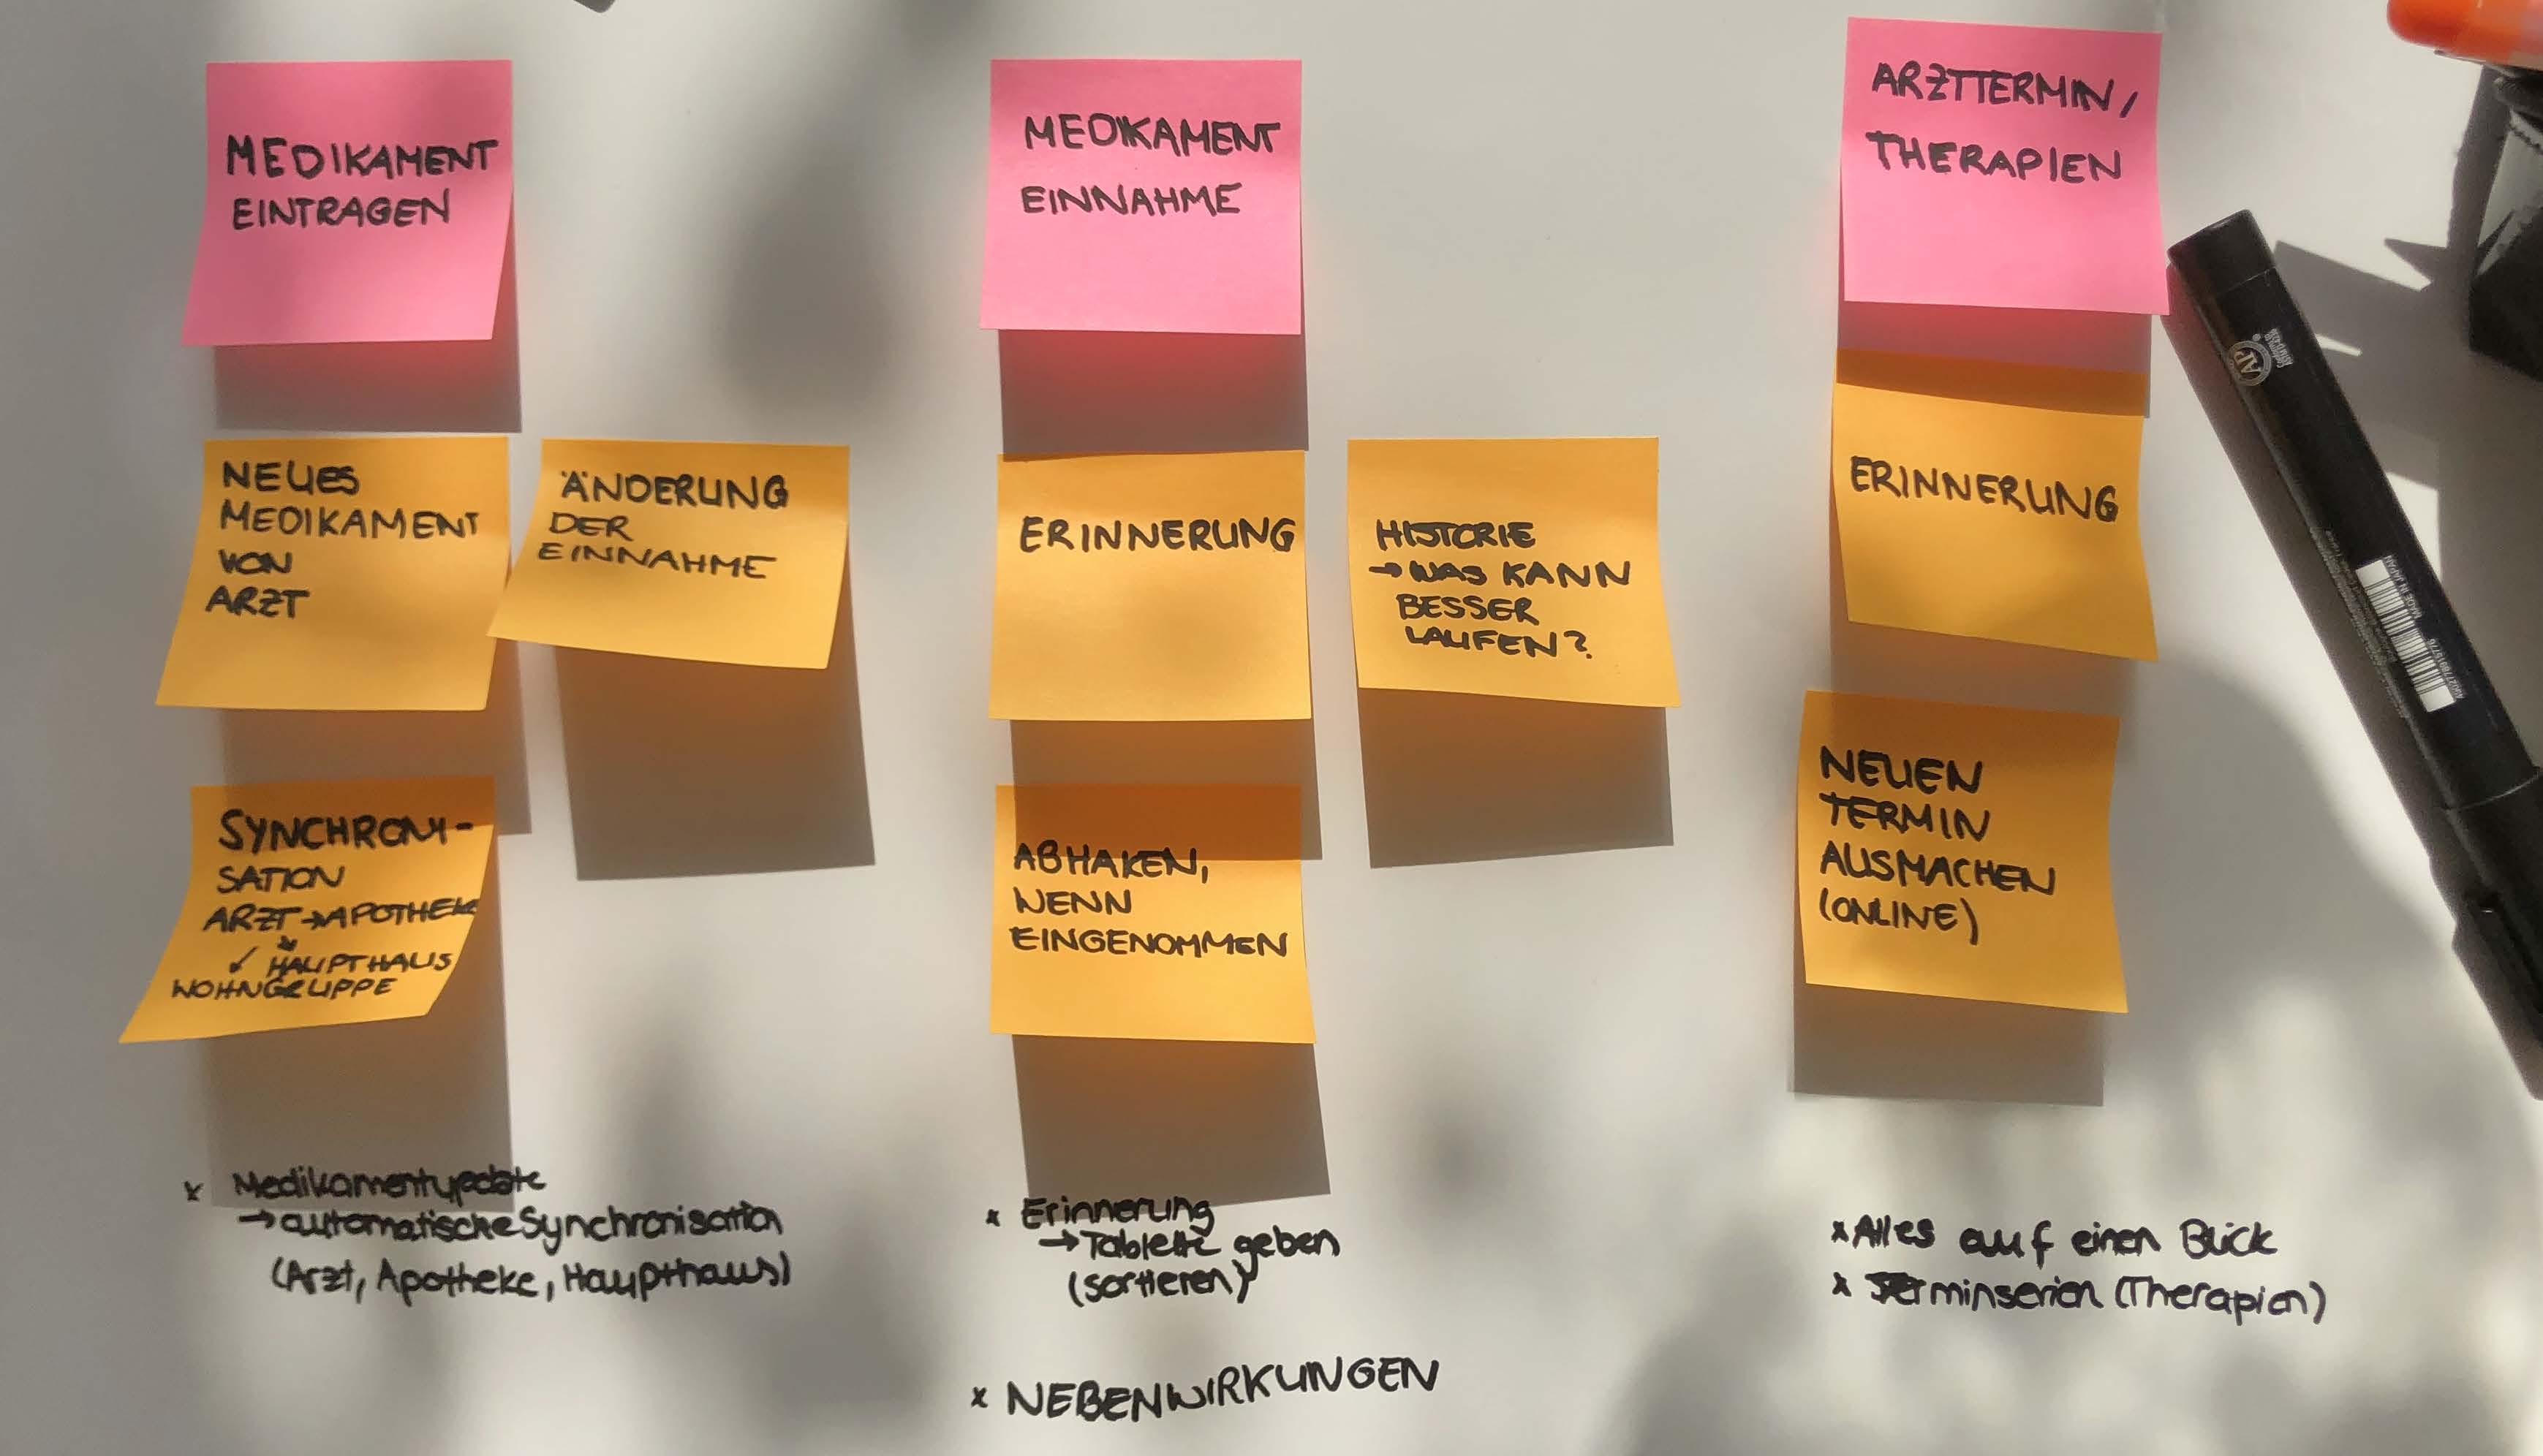 MEDIKAMENT
EINTRAGEN
NEUES
MEDIKAMENT
VON
ARZT
ÄNDERUNG
DER
EINNAHME
SYNCHRONI-
SATION
ARZT → APOTHEKE
↙ HAUPTHAUS
WOHNGRUPPE
x Medikamentupdate
→ automatische Synchronisation
(Arzt, Apotheke, Haupthaus)
MEDIKAMENT
EINNAHME
ERINNERUNG
HISTORIE
→ WAS KANN
BESSER
LAUFEN?
ABHAKEN,
WENN
EINGENOMMEN
x Erinnerung
→ Tablette geben
(sortieren)
x NEBENWIRKUNGEN
ARZTTERMIN,
THERAPIEN
ERINNERUNG
NEUEN
TERMIN
AUSMACHEN
(ONLINE)
x Alles auf einen Blick
x Terminserien (Therapien)
AP
MADE IN JAPAN